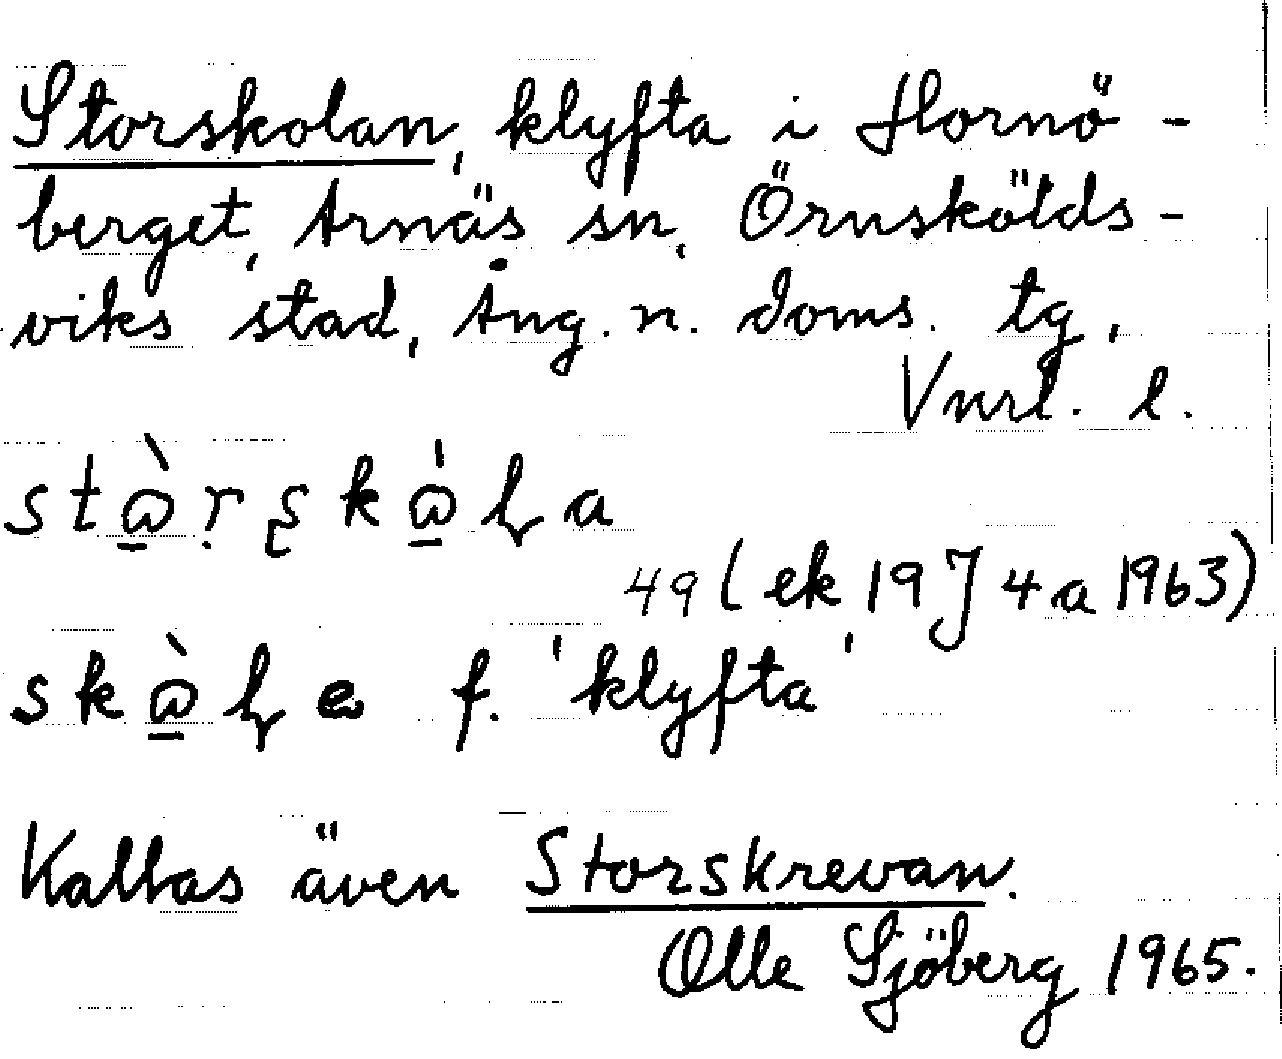 Storskolan, klyfta i Hornö-
berget, Arnäs sn, Örnskölds-
viks stad, Ång. n. doms. tg,
Vnrl. l.
49 (ek 19J4a 1963)
f. 'klyfta'
Kallas även Storskrevan.
Olle Sjöberg 1965.